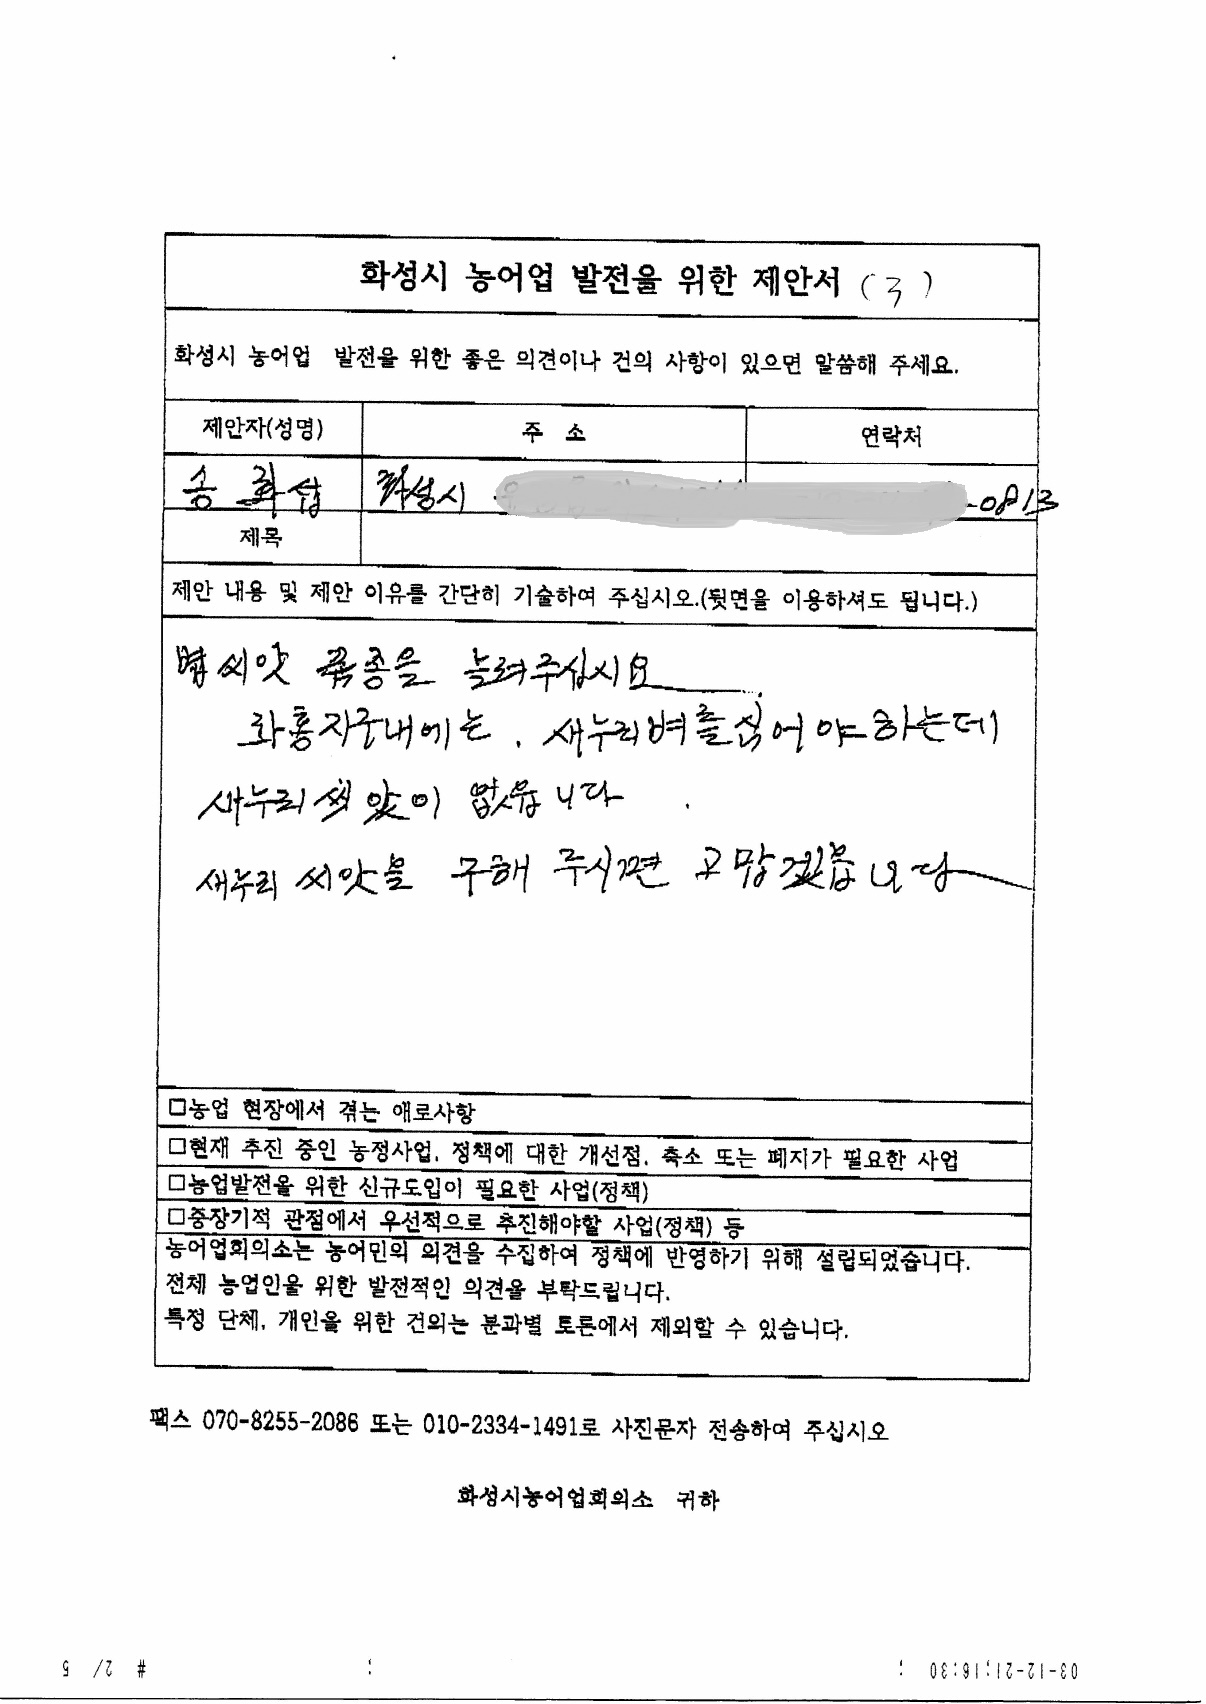 화성시 농어업 발전을 위한 제안서 (3)
화성시 농어업 발전을 위한 좋은 의견이나 건의 사항이 있으면 말씀해 주세요.
제안자(성명) 주 소 연락처
송 화섭 화성시 -0813
제목
제안 내용 및 제안 이유를 간단히 기술하여 주십시오.(뒷면을 이용하셔도 됩니다.)
볍씨앗 품종을 늘려주십시요
화홍지구내에는 . 새누리벼를 심어야하는데
새누리 씨앗이 없읍니다
새누리 씨앗을 구해 주시면 고맙겠읍니다
□농업 현장에서 겪는 애로사항
□현재 추진 중인 농정사업, 정책에 대한 개선점, 축소 또는 폐지가 필요한 사업
□농업발전을 위한 신규도입이 필요한 사업(정책)
□중장기적 관점에서 우선적으로 추진해야할 사업(정책) 등
농어업회의소는 농어민의 의견을 수집하여 정책에 반영하기 위해 설립되었습니다.
전체 농업인을 위한 발전적인 의견을 부탁드립니다.
특정 단체, 개인을 위한 건의는 분과별 토론에서 제외할 수 있습니다.
팩스 070-8255-2086 또는 010-2334-1491로 사진문자 전송하여 주십시오
화성시농어업회의소 귀하
03-12-21;16:30 ; ; # 2/ 5